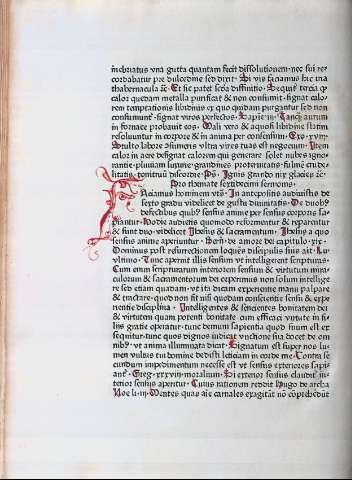 inebriatus vna gutta quantam fecit dissolutionem. nec sui re-
cordabatur pre dulcedine sed dixit. Si vis faciamus hic tria
thabernacula &c̄. Et sic patet scd̄a diffinitio. Sequit᷑ tercia ꝙ
calor quedam metalla purificat & non consumit. signat calo-
rem temptationis libidinis ex quo quidam purgantur sed non
consumunt᷑. signat viros perfectos. Sapie. iij. Tanq̄ᷓ aurum
in fornace probauit eos. Mali vero & aquosi libidine statim
resoluuntur in corpore & in anima per consensum. Exo. xviij.
Stulto labore consumeris vltra vires tuas est negocium. Item
calor in aere designat calorem qui generat solet nubes igno-
rantie. pluuiam luxurie. grandines proteruitatis. fulmē crude-
litatis. tonitruū discordie. Ps. Ignis grando nix glacies &c̄.
Sto thomate septidecimi sermonis.
Faciamus hominem vt s̄. In antepositis audiuistis de
sexto gradu videlicet de gustu diuinitatis. De duob
defectibus quib sensus anime per sensus corporis sa-
piantur. Hodie audietis quomodo reformatur & reparatur
& sunt duo. videlicet Jhesus & sacramentum. Jhesus a quo
sensus anime aperiuntur. Bern. de amore dei capitulo. xix.
Dominus post resurrectionem loquens discipulis suis ait. Lu.
vltimo. Tunc aperuit illis sensum vt intelligerent scripturas.
Cum enim scripturarum interiorem sensum & virtutem mira-
culorum & sacramentorum dei ceperimus non solum intellige
re sed etiam quadam. vt ita dicam experientie manu palpare
& tractare. quod non fit nisi quodam conscientie sensu & expe
rientie disciplina. Intelligentes & scientes bonitatem dei
& virtutem quam potenti bonitate & efficaci virtute in fi-
liis gratie operatur. tunc demum sapientia quod suum est ex
sequitur. tunc quos dignos iudicat vnctione sua docet de om
nib. vt anima illuminata dicat. Signatum est super nos lu-
men vultus tui domine dedisti leticiam in corde meo. Contra se
cundum impedimentum necesse est vt sensus exteriores sapi-
ant᷑. Greg. xxxviij. moralium. Si exterior sensus claudit᷑ in-
terior sensus aperitur. Cuius rationem reddit Hugo de archa
Noe. li. iij. Mentes quas aīe carnales exagitāt nō cōprehēdūt